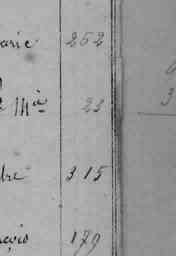 arie 252
e Mie 23
dre 315
nçois 179
3